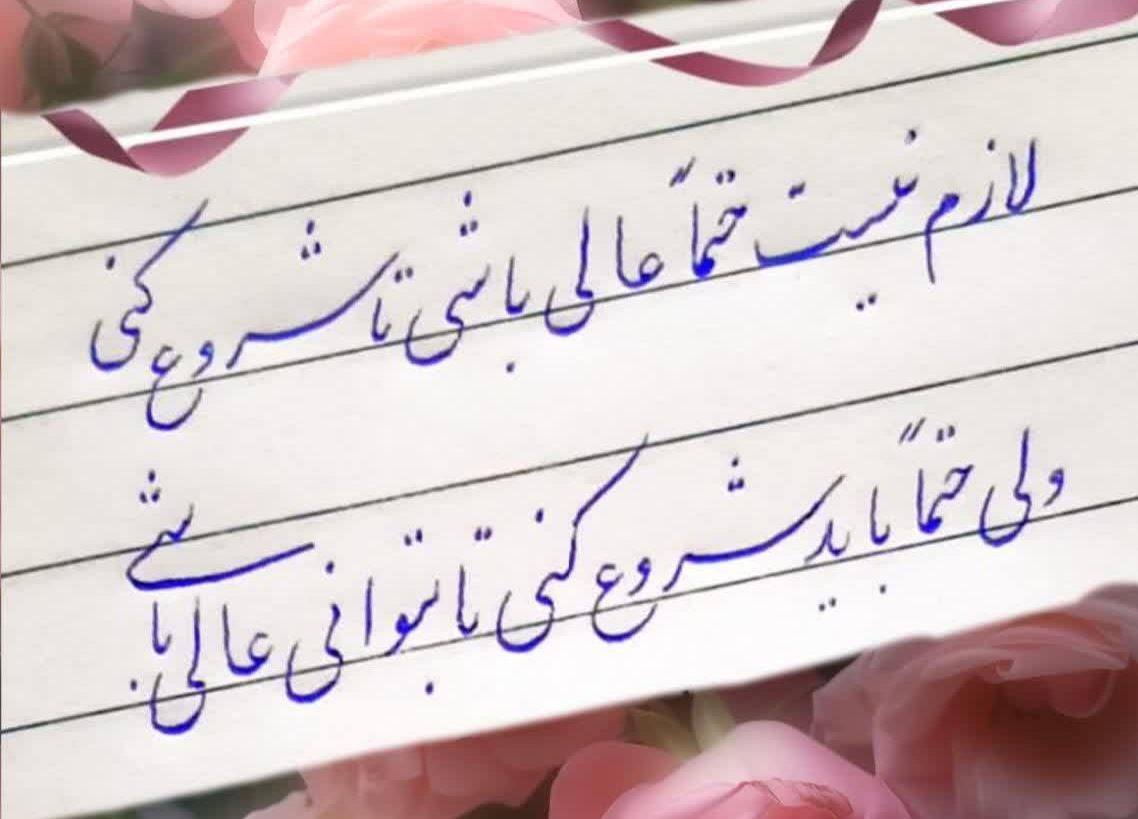 لازم نیست حتماً عالی باشی تا شروع کنی
ولی حتماً باید شروع کنی تا بتوانی عالی باشی